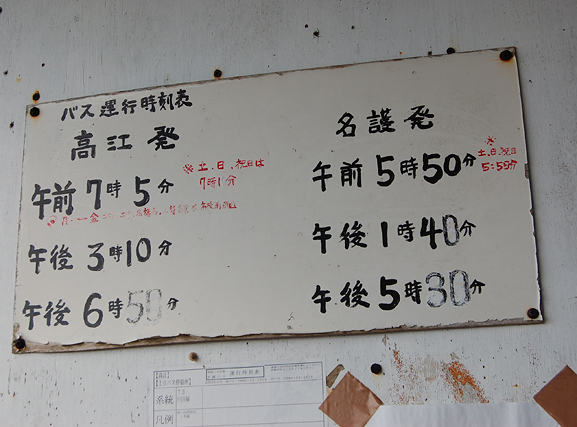 バス運行時刻表
高江発
午前7時5分
※土.日.祝日は
7時1分
午後3時10分
午後6時50分
名護発
午前5時50分
※
土.日.祝日
5:55分
午後1時40分
午後5時30分
運行時刻表
系統
凡例